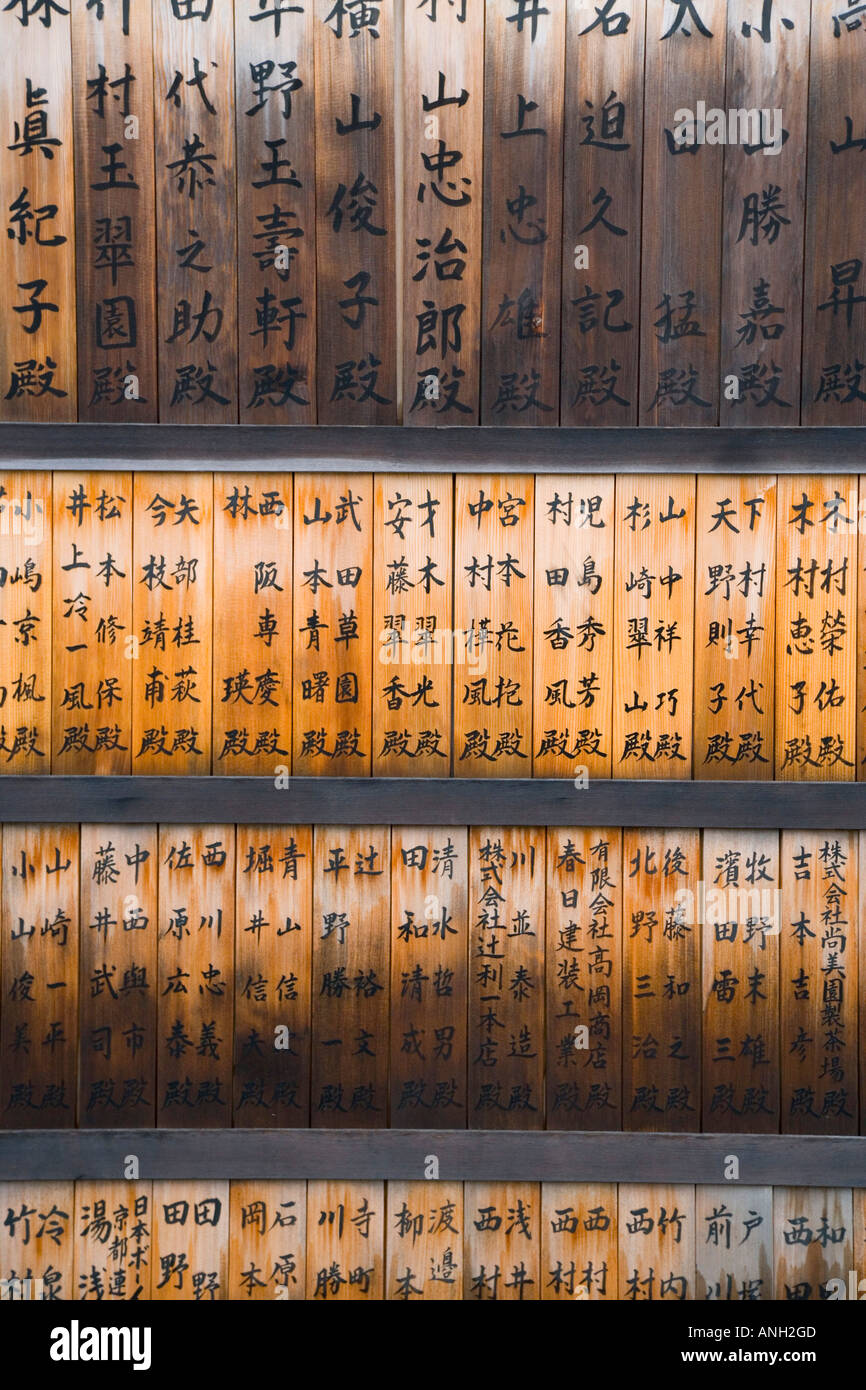 高山昇殿
小山勝嘉殿
太田猛殿
迫久記殿
井上忠雄殿
村山忠治郎殿
横山俊子殿
平野玉壽軒殿
田代恭之助殿
竹村玉翠園殿
林眞紀子殿
木村榮佑殿
木村恵子殿
下村幸代殿
天野則子殿
山中祥巧殿
杉崎翠山殿
児島秀芳殿
村田香風殿
宮本花抱殿
中村樺風殿
才木翠光殿
安藤翠香殿
武田草園殿
山本青曙殿
西阪専慶殿
林瑛殿
矢部桂萩殿
今枝靖甫殿
松本修保殿
井上冷一風殿
小嶋京楓殿
株式会社尚美園製茶場殿
吉本吉彦殿
牧野末雄殿
濱田雷三殿
後藤和之殿
北野三治殿
有限会社高岡商店殿
春日建装工業殿
川並泰造殿
株式会社辻利一本店殿
清水哲男殿
田和清成殿
辻裕文殿
平野勝一殿
青山信殿
堀井信夫殿
西川忠義殿
佐原広泰殿
中西與市殿
藤井武司殿
山崎一平殿
小山俊美殿
和
西田
戸塚
前川
竹内
西村
西村
西村
浅井
西村
渡邉
柳本
寺町
川勝
石原
岡本
田野
田野
日本ボー
京都連
湯浅
冷泉
竹村
alamy
Image ID: ANH2GD
www.alamy.com